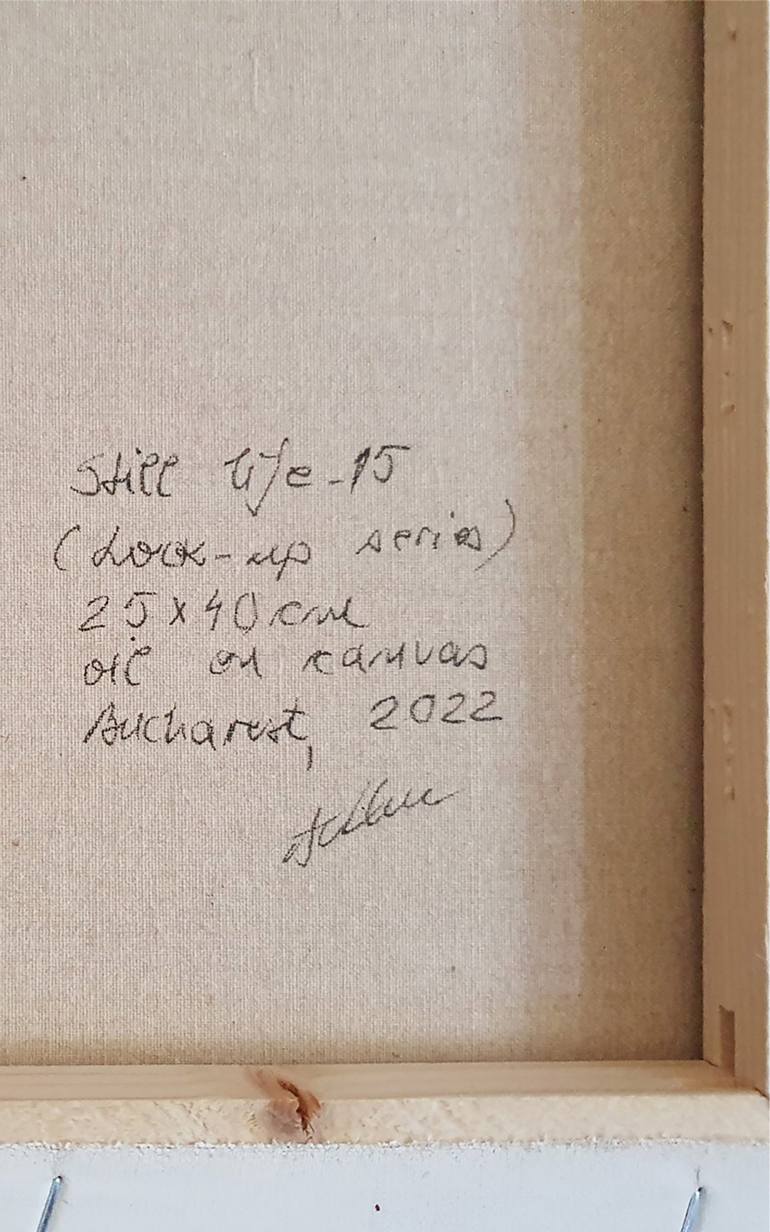 Still life-15
(Look-up series)
25x40 cm
oil on canvas
Bucharest, 2022